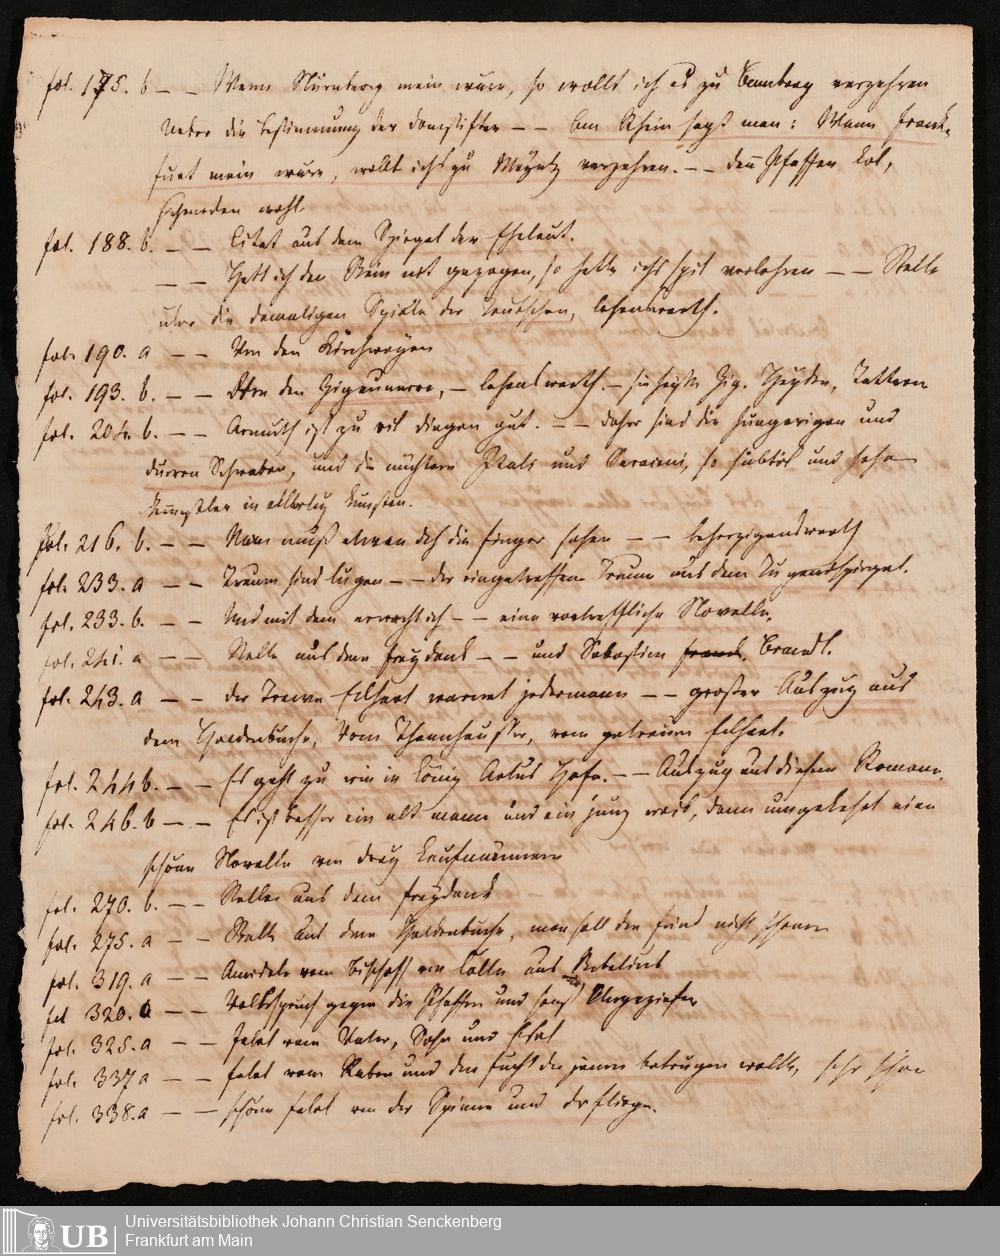 fol. 175. b — — Wenn Nürnberg mein wäre, so wollt ich es zu Bamberg verzehren
Ueber die Bestimmung der Domstifter — — Am Rhein sagt man: Wann Frank-
furt mein wäre, wollt ichs zu Meyntz verzehren. — — den Pfaffen Lob,
wohl
fol. 188. b. — — Citat aus dem Spiegel der Eheleut.
— — Hett ich den Stein nit gezogen, so hette ichs spil verlohren — — Stelle
über die damaligen Spiele der Teutschen, lesenswerth.
fol. 190. a — — Von den
fol. 193. b. — — Von den Zigeunern, — lesenswerth. — sie heißen Zig. Heyden, Tattern
fol. 204. b. — — Armuth ist zu vil dingen gut. — — daher sind die hungerigen und
durren Schwaben, und die nüchtern Itali und Saraceni, so subtil und hohe
in allerley Kunsten.
fol. 216. b. — — Man muß etwan dch die Finger sehen — — beherzigenswerth
fol. 233. a — — Treum sind lugen — — der eingetroffene Traum aus dem Tugendspiegel.
fol. 233. b. — — Und mit dem erwacht ich — — eine vortreffliche Novelle.
fol. 241. a — — Stelle aus dem Freydank — — und Sebastian Franck. Brandt.
fol. 243. a — — der Treuw Eckhart warnet jederman — — großer Auszug aus
dem Heldenbuche, vom Thannhäuser, vom getreuen Eckhart.
fol. 244 b. — — Es geht zu wie in König Artus Hofe. — — Auszug aus diesem Roman.
fol. 246. b — — Es ist besser ein alt mann und ein jung weib, dann umgekehrt eine
schöne Novelle von drey Kaufmännern
fol. 270. b. — — Stelle aus dem Freydank
fol. 275. a — — Stelle aus dem Heldenbuche, man soll den feind nicht
fol. 319. a — — Anecdote vom Bischoff von Cölln aus Bebelius
fol 320. a — — Volksspruch gegen die Pfaffen und sonst Ungeziefer
fol. 325. a — — Fabel vom Vater, Sohn und Esel
fol. 337 a — — Fabel vom Raben und den Fuchs der jenen betrugen wollte, sehr schön
fol. 338. a — — schöne Fabel von der Spinne und dr Fliege.
UB
Universitätsbibliothek Johann Christian Senckenberg
Frankfurt am Main